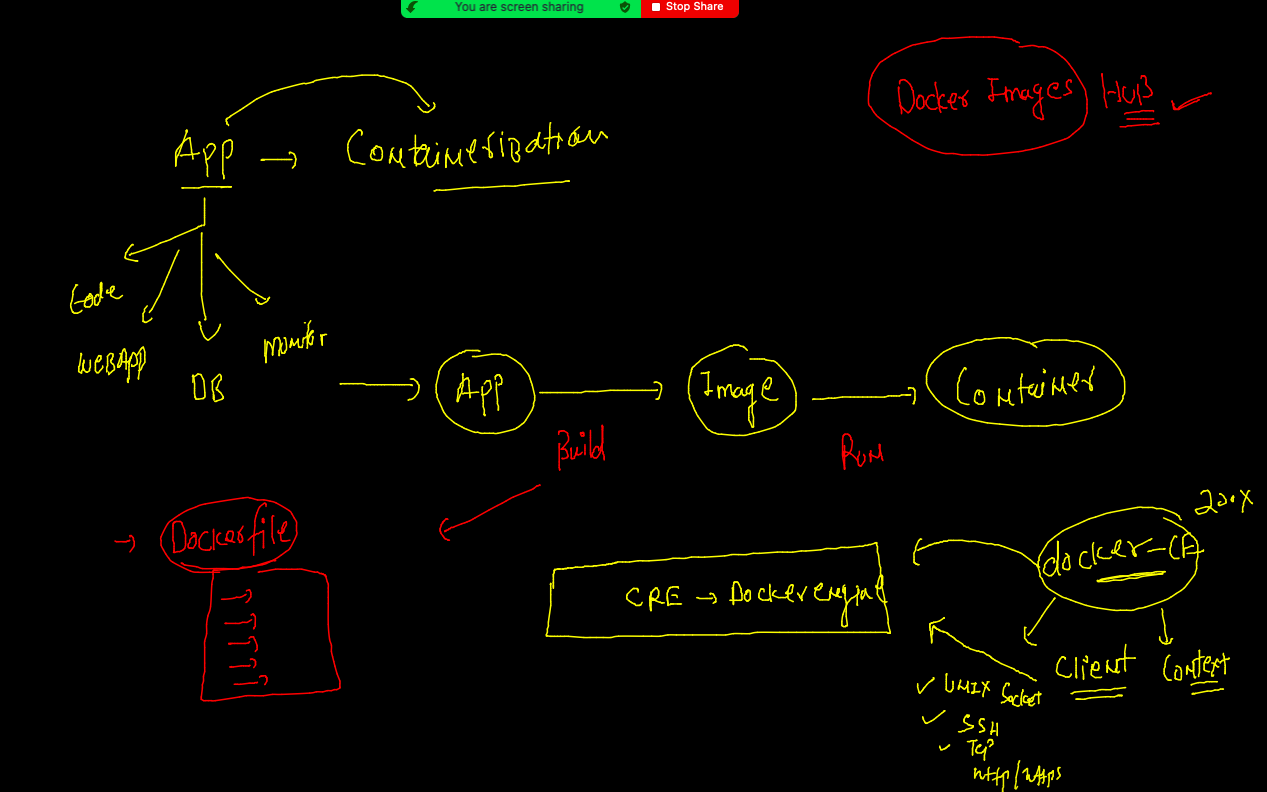 You are screen sharing Stop Share
Docker Images HUB
App → Containerization
Code
WEBAPP
DB
Monitor
App
Image
Container
Build
Run
Dockerfile
20.X
docker-CE
CRE → Dockerengine
Client
Context
UNIX Socket
SSH
TCP
http/https